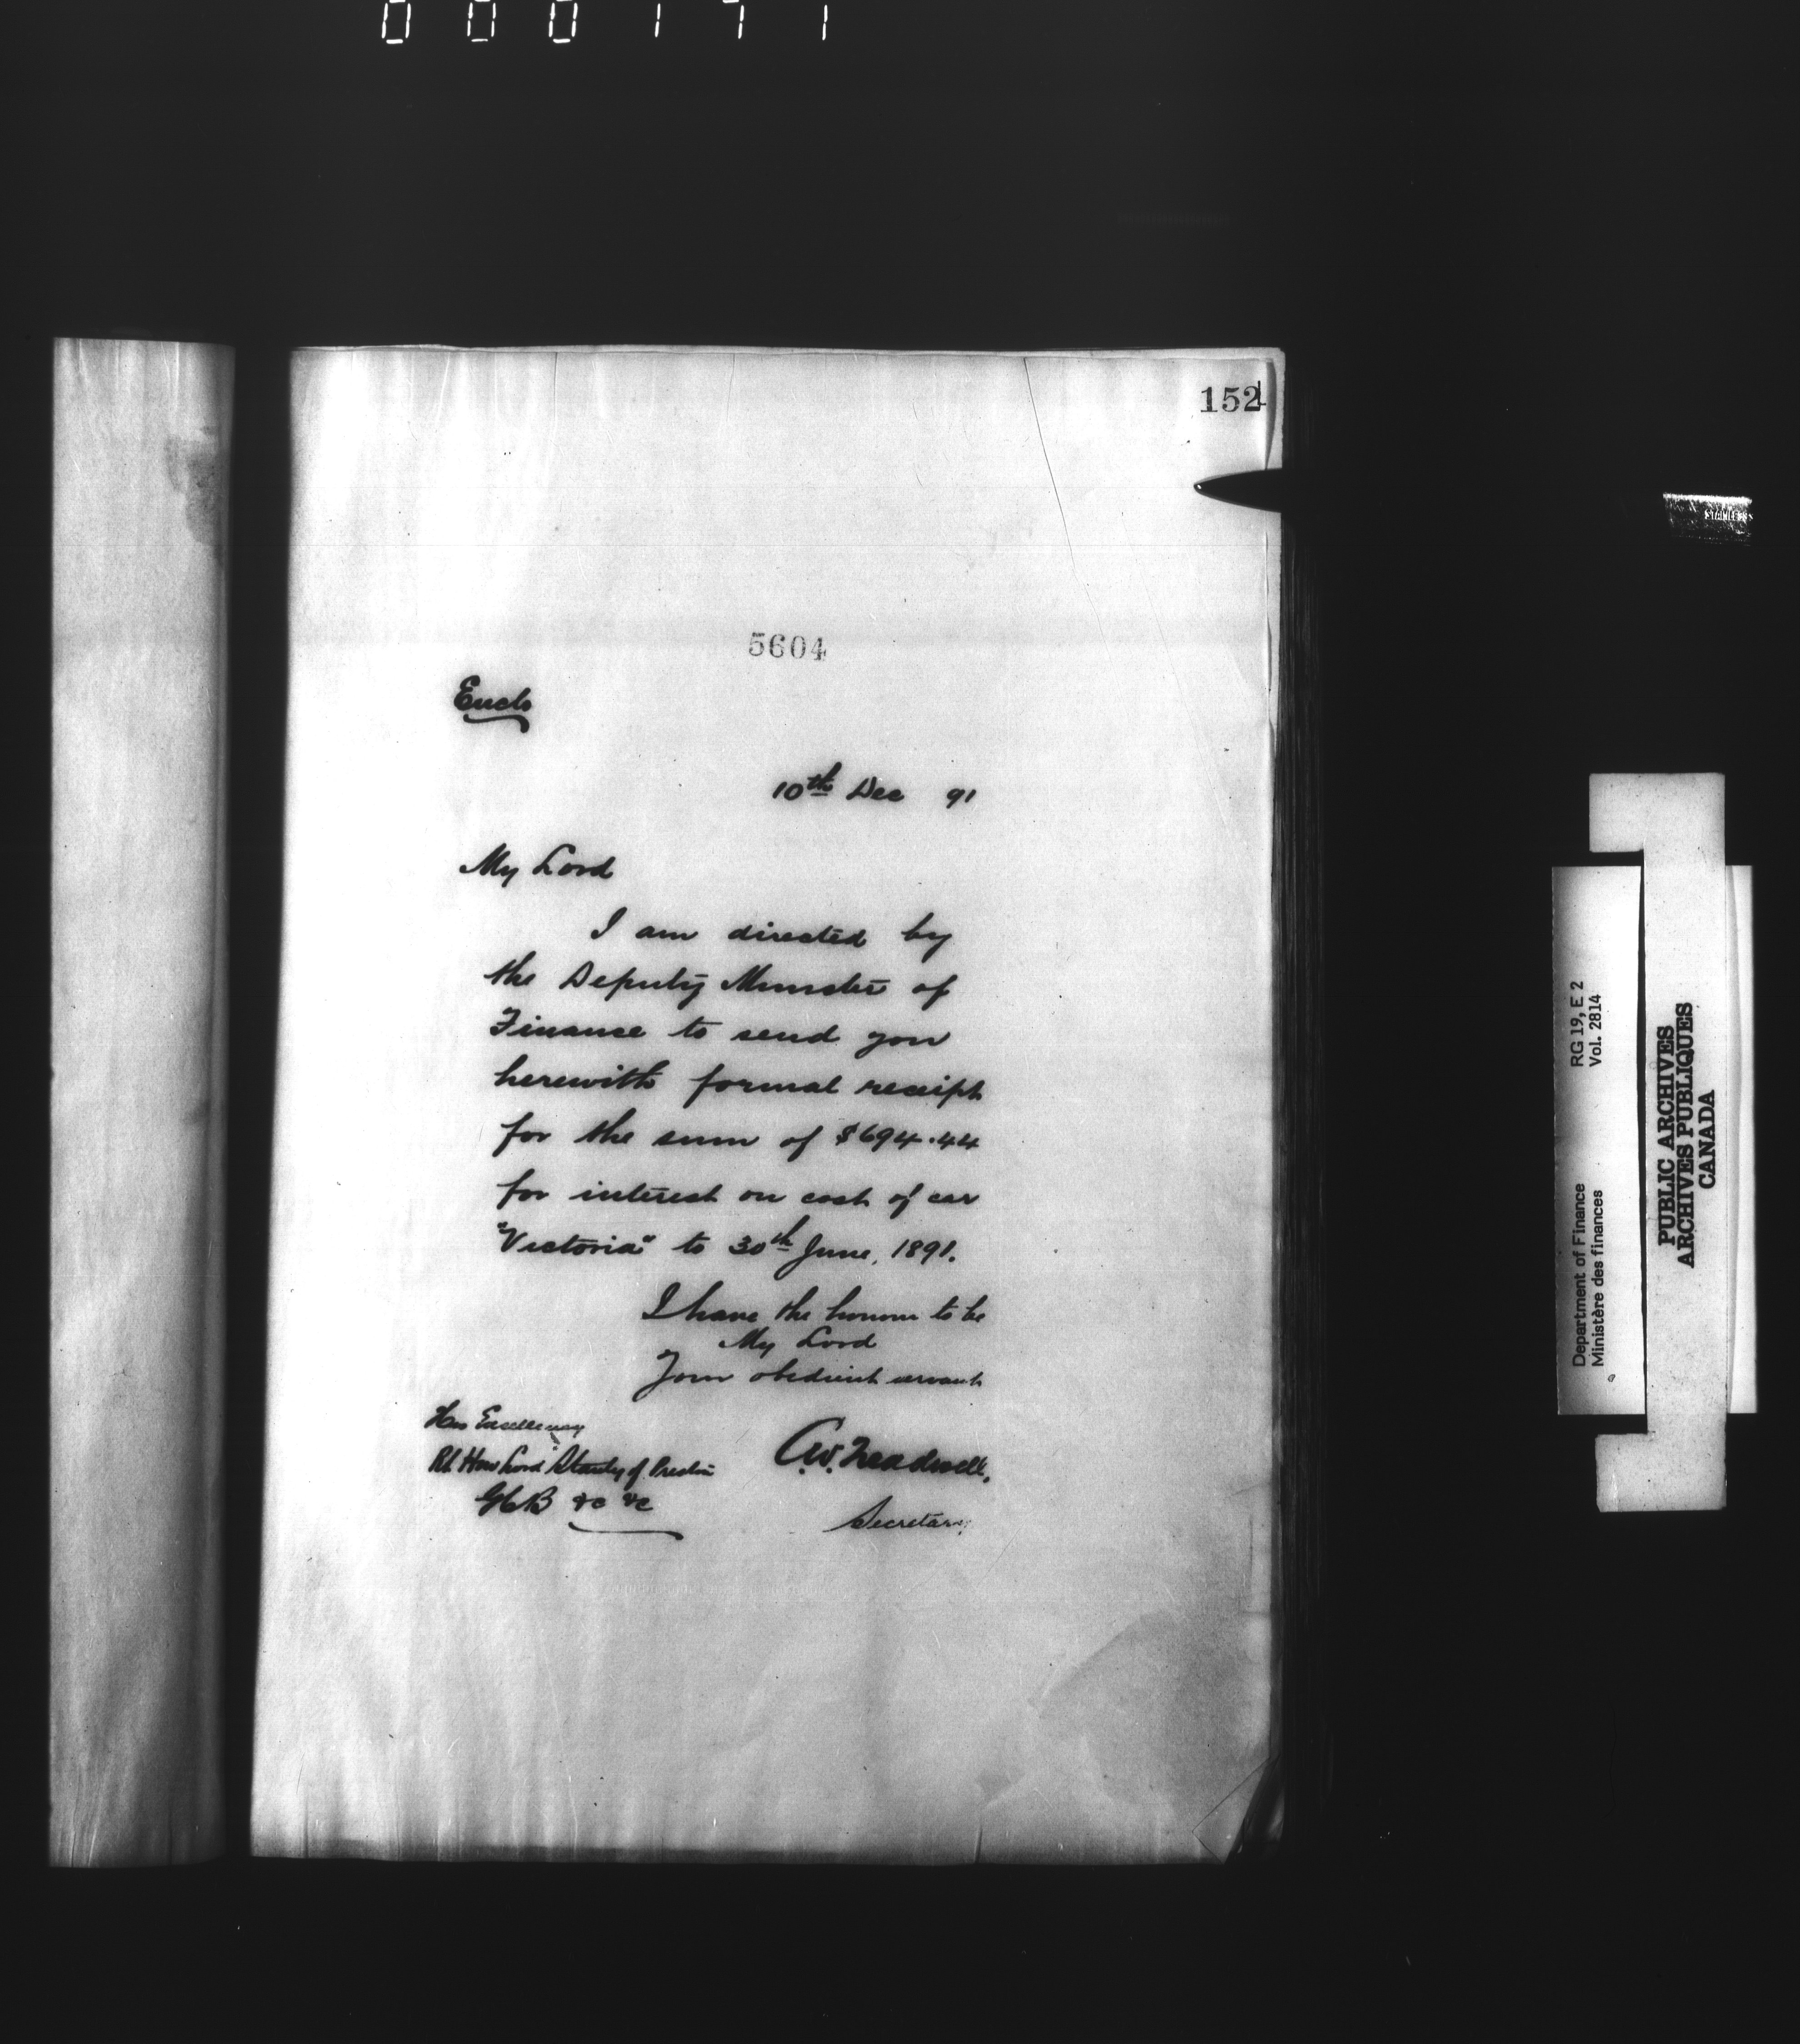 000171
152
5604
Encls
10th Dec 91
My Lord
I am directed by
the Deputy Minister of
Finance to send you
herewith formal receipt
for the sum of $694.44
for interest on cost of car
"Victoria" to 30th June, 1891.
I have the honour to be
My Lord
Your obedient servant
His Excellency
Rt Hon Lord Stanley of Preston
GCB &c &c
C.W. Treadwell,
Secretary
STAINLESS
RG 19, E 2
Vol. 2814
Department of Finance
Ministère des finances
PUBLIC ARCHIVES
ARCHIVES PUBLIQUES
CANADA